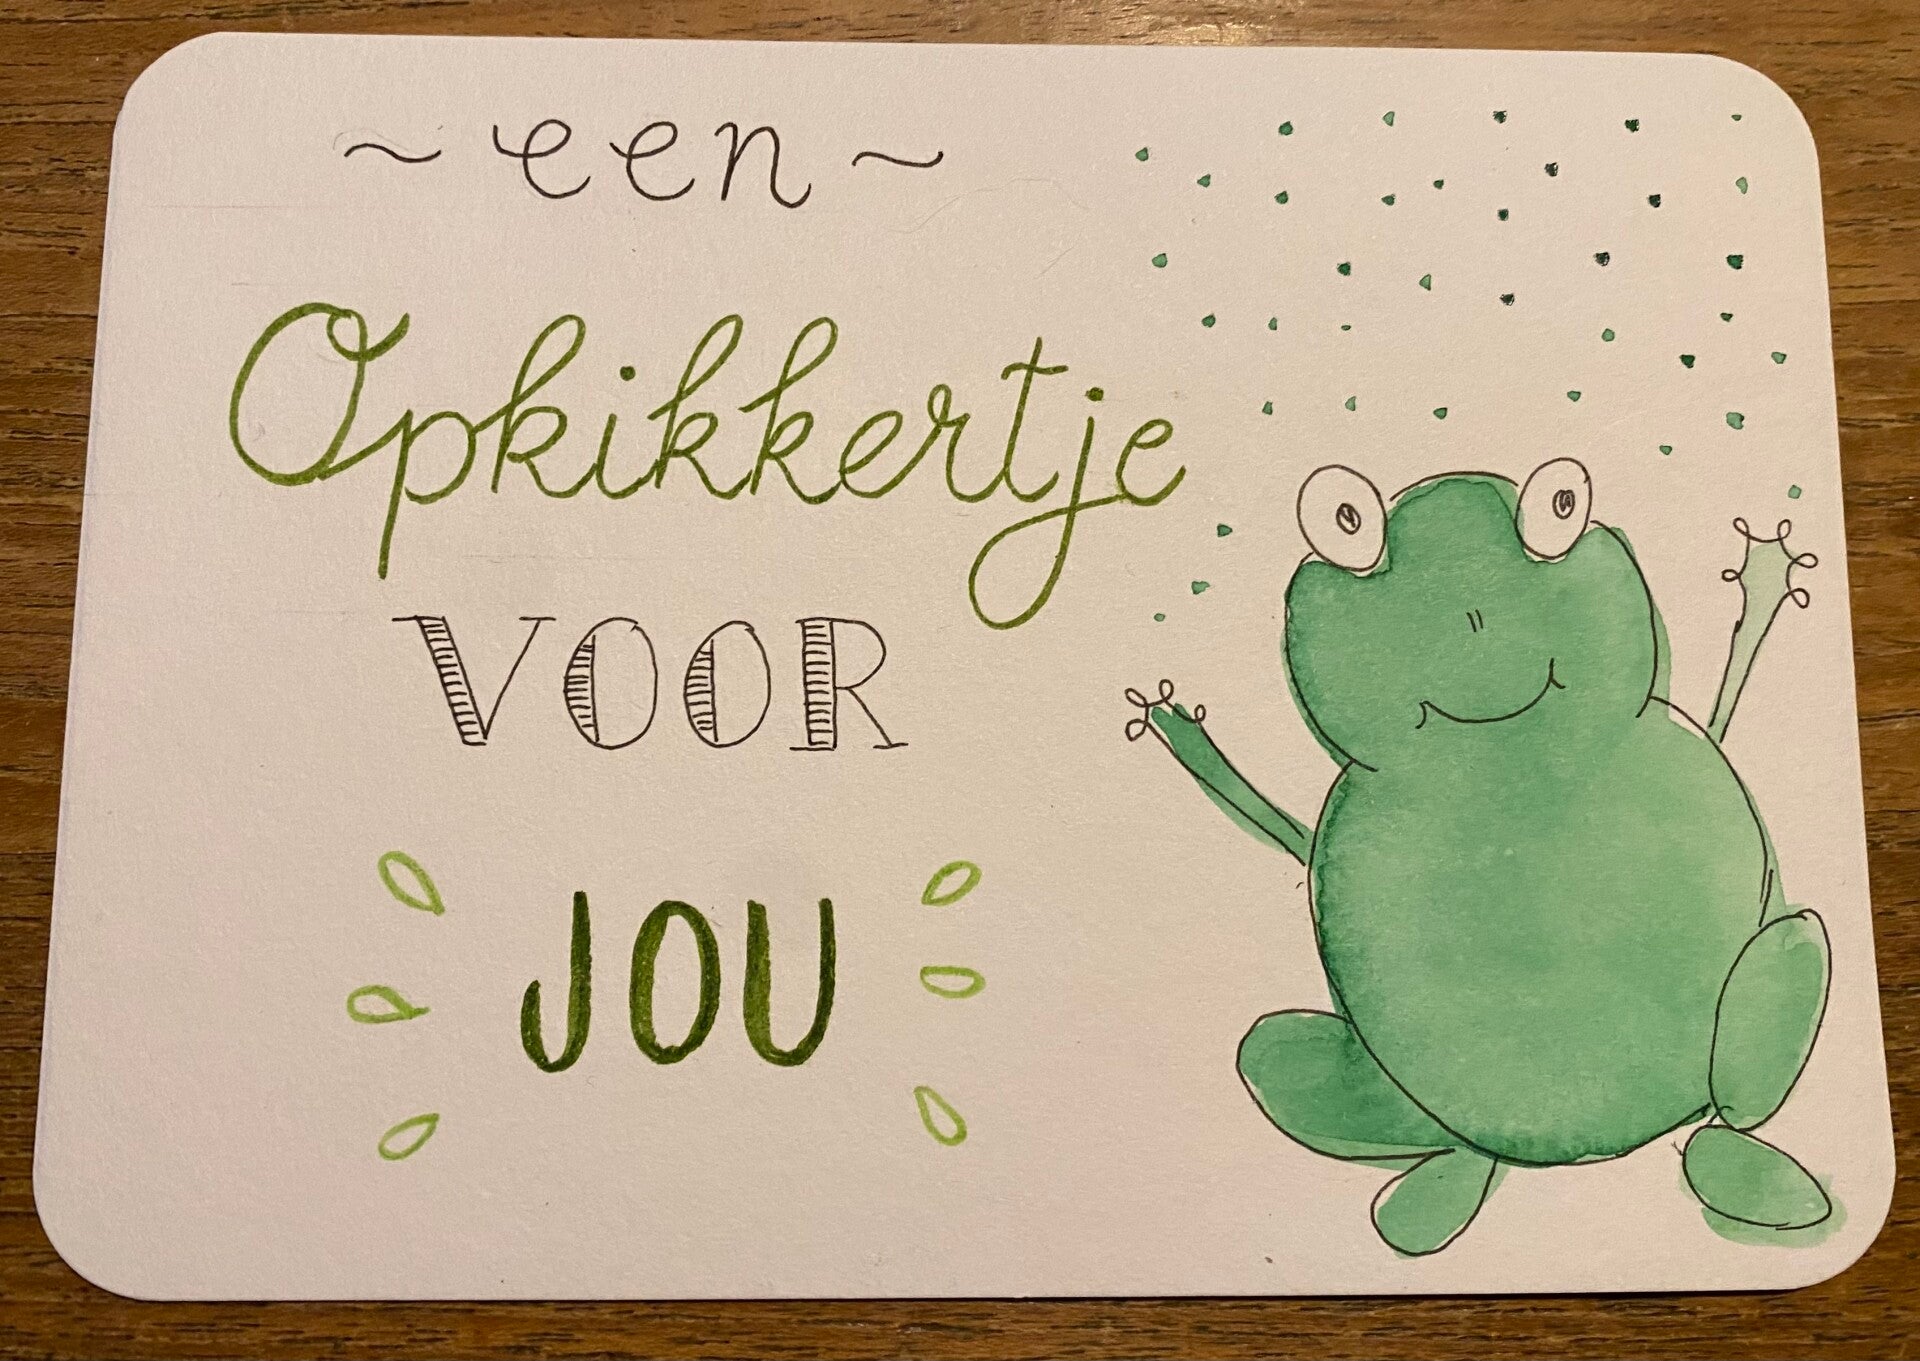 ~ een ~
Opkikkertje
VOOR
JOU